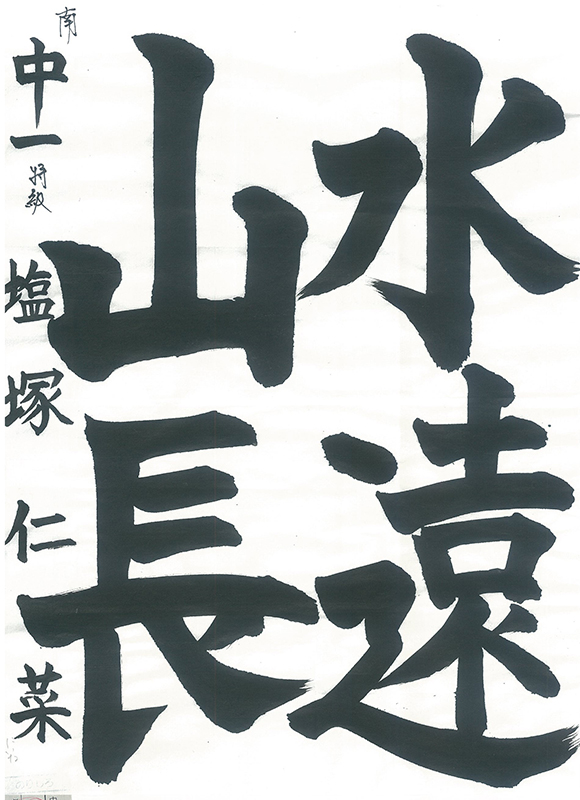 水遠
山長
南 中一 特級 塩塚仁菜